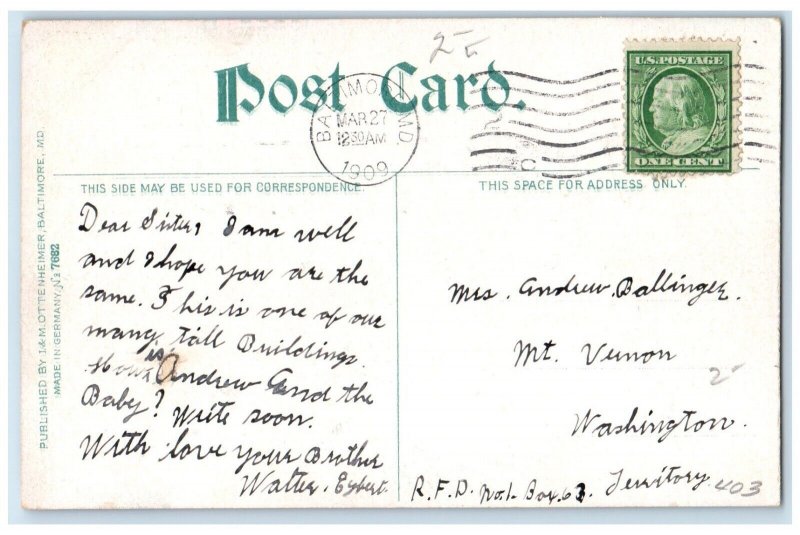 Post Card.
2
BALTIMORE, MD.
MAR 27
12 30 AM
1909
C
U.S. POSTAGE
ONE CENT
THIS SIDE MAY BE USED FOR CORRESPONDENCE.
THIS SPACE FOR ADDRESS ONLY.
PUBLISHED BY I. & M. OTTENHEIMER, BALTIMORE, MD.
MADE IN GERMANY. No 7682
Dear Sister, I am well
and I hope you are the
same. This is one of our
many tall Buildings.
How is Andrew and the
Baby? Write soon.
With love your Brother
Walter. Eybert.
Mrs. Andrew. Ballinger.
Mt. Vernon
2
Washington.
R.F.D. No. 1. Box. 63. Territory.
403